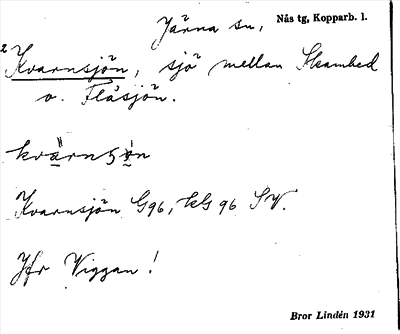 Järna sn, Nås tg, Kopparb. l.
2 Kvarnsjön, sjö mellan Skambed
o. Flåsjön.
Kvarnsjön G96, KG 96 SV.
Jfr Viggan!
Bror Lindén 1931